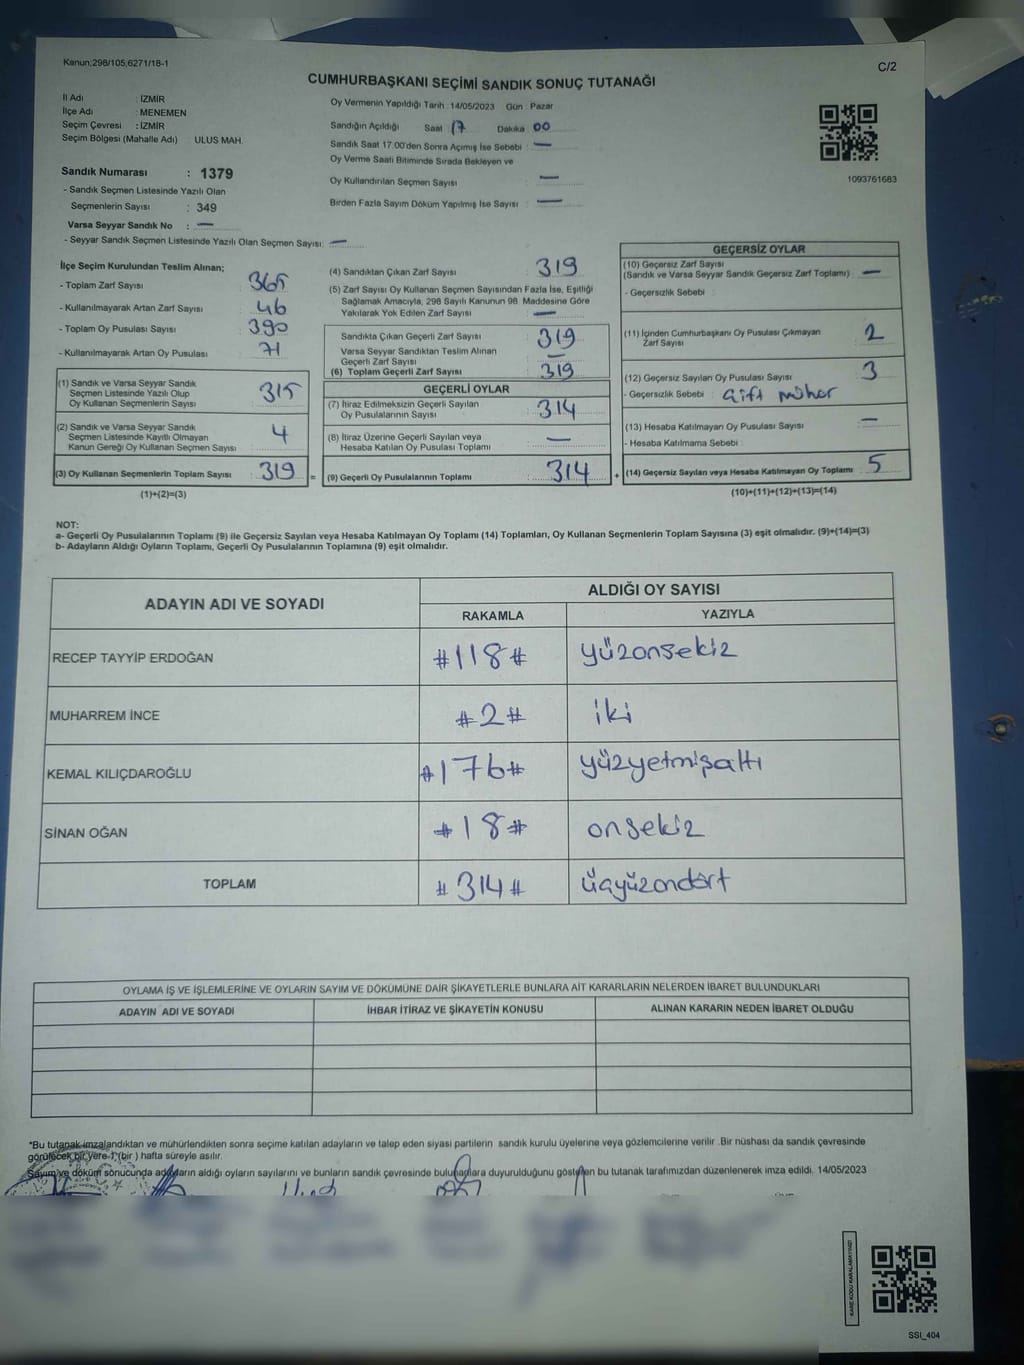 Kanun;298/105,6271/18-1
C/2
CUMHURBAŞKANI SEÇİMİ SANDIK SONUÇ TUTANAĞI
İl Adı : İZMİR
İlçe Adı : MENEMEN
Seçim Çevresi : İZMİR
Seçim Bölgesi (Mahalle Adı) ULUS MAH.
Sandık Numarası : 1379
- Sandık Seçmen Listesinde Yazılı Olan
Seçmenlerin Sayısı : 349
Varsa Seyyar Sandık No : —
- Seyyar Sandık Seçmen Listesinde Yazılı Olan Seçmen Sayısı: —
Oy Vermenin Yapıldığı Tarih : 14/05/2023 Gün : Pazar
Sandığın Açıldığı Saat : 17 Dakika 00
Sandık Saat 17.00'den Sonra Açımış İse Sebebi : —
Oy Verme Saati Bitiminde Sırada Bekleyen ve
Oy Kullandırılan Seçmen Sayısı : —
Birden Fazla Sayım Döküm Yapılmış İse Sayısı : —
1093761683
İlçe Seçim Kurulundan Teslim Alınan;
- Toplam Zarf Sayısı : 365
- Kullanılmayarak Artan Zarf Sayısı : 46
- Toplam Oy Pusulası Sayısı : 390
- Kullanılmayarak Artan Oy Pusulası : 71
(1) Sandık ve Varsa Seyyar Sandık
Seçmen Listesinde Yazılı Olup
Oy Kullanan Seçmenlerin Sayısı : 315
(2) Sandık ve Varsa Seyyar Sandık
Seçmen Listesinde Kayıtlı Olmayan
Kanun Gereği Oy Kullanan Seçmen Sayısı : 4
(3) Oy Kullanan Seçmenlerin Toplam Sayısı : 319 =
(1)+(2)=(3)
(4) Sandıktan Çıkan Zarf Sayısı : 319
(5) Zarf Sayısı Oy Kullanan Seçmen Sayısından Fazla İse, Eşitliği
Sağlamak Amacıyla, 298 Sayılı Kanunun 98. Maddesine Göre
Yakılarak Yok Edilen Zarf Sayısı : —
Sandıkta Çıkan Geçerli Zarf Sayısı : 319
Varsa Seyyar Sandıktan Teslim Alınan
Geçerli Zarf Sayısı : —
(6) Toplam Geçerli Zarf Sayısı : 319
GEÇERLİ OYLAR
(7) İtiraz Edilmeksizin Geçerli Sayılan
Oy Pusulalarının Sayısı : 314
(8) İtiraz Üzerine Geçerli Sayılan veya
Hesaba Katılan Oy Pusulası Toplamı : —
(9) Geçerli Oy Pusulalarının Toplamı : 314 +
GEÇERSİZ OYLAR
(10) Geçersiz Zarf Sayısı
(Sandık ve Varsa Seyyar Sandık Geçersiz Zarf Toplamı) : —
- Geçersizlik Sebebi :
(11) İçinden Cumhurbaşkanı Oy Pusulası Çıkmayan
Zarf Sayısı : 2
(12) Geçersiz Sayılan Oy Pusulası Sayısı : 3
- Geçersizlik Sebebi : Çift mühür
(13) Hesaba Katılmayan Oy Pusulası Sayısı : —
- Hesaba Katılmama Sebebi :
(14) Geçersiz Sayılan veya Hesaba Katılmayan Oy Toplamı : 5
(10)+(11)+(12)+(13)=(14)
NOT:
a- Geçerli Oy Pusulalarının Toplamı (9) ile Geçersiz Sayılan veya Hesaba Katılmayan Oy Toplamı (14) Toplamları, Oy Kullanan Seçmenlerin Toplam Sayısına (3) eşit olmalıdır. (9)+(14)=(3)
b- Adayların Aldığı Oyların Toplamı, Geçerli Oy Pusulalarının Toplamına (9) eşit olmalıdır.
ADAYIN ADI VE SOYADI ALDIĞI OY SAYISI
RAKAMLA YAZIYLA
RECEP TAYYİP ERDOĞAN #118# yüzonsekiz
MUHARREM İNCE #2# iki
KEMAL KILIÇDAROĞLU #176# yüzyetmişaltı
SİNAN OĞAN #18# onsekiz
TOPLAM #314# üçyüzondört
OYLAMA İŞ VE İŞLEMLERİNE VE OYLARIN SAYIM VE DÖKÜMÜNE DAİR ŞİKAYETLERLE BUNLARA AİT KARARLARIN NELERDEN İBARET BULUNDUKLARI
ADAYIN ADI VE SOYADI İHBAR İTİRAZ VE ŞİKAYETİN KONUSU ALINAN KARARIN NEDEN İBARET OLDUĞU
*Bu tutanak imzalandıktan ve mühürlendikten sonra seçime katılan adayların ve talep eden siyasi partilerin sandık kurulu üyelerine veya gözlemcilerine verilir .Bir nüshası da sandık çevresinde
görülecek bir yere 1 (bir ) hafta süreyle asılır.
Sayım ve döküm sonucunda adayların aldığı oyların sayılarını ve bunların sandık çevresinde bulunanlara duyurulduğunu gösteren bu tutanak tarafımızdan düzenlenerek imza edildi. 14/05/2023
KARE KODU KARALAMAYINIZ!
SSI_404